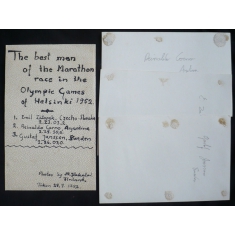 The best men
of the Marathon
race in the
Olympic Games
of Helsinki 1952.
1. Emil Zatopek, Czecho Slovakia
2.23.03,2.
2. Reinaldo Gorno Argentina
2.25.35,0.
3. Gustaf Jansson, Sweden
2.26.07,0.
Photos by
Finland.
Taken 27.7.1952.
Reinaldo Gorno
Gustaf Jansson